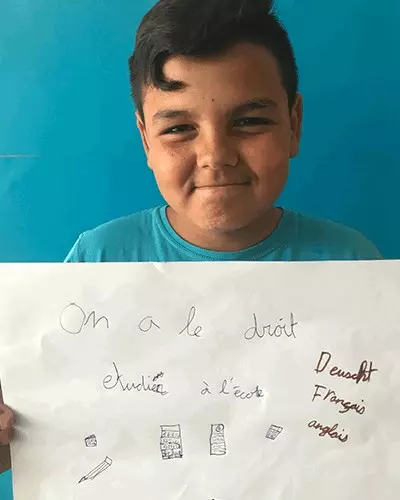 On a le droit
etudier à l'école
Deuscht
Français
anglais